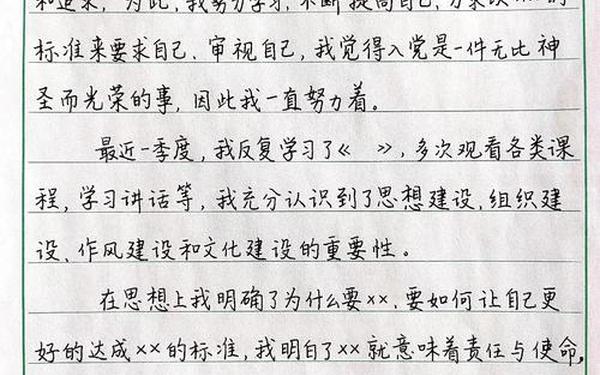 和追求，为此，我努力学习，不断提高自己，
标准来要求自己、审视自己，我觉得入党是一件无比神
圣而光荣的事，因此我一直努力着。
最近一季度，我反复学习了《　》，多次观看各类课
程，学习讲话等，我充分认识到了思想建设、组织建
设、作风建设和文化建设的重要性。
在思想上我明确了为什么要××，要如何让自己更
好的达成××的标准，我明白了××就意味着责任与使命，